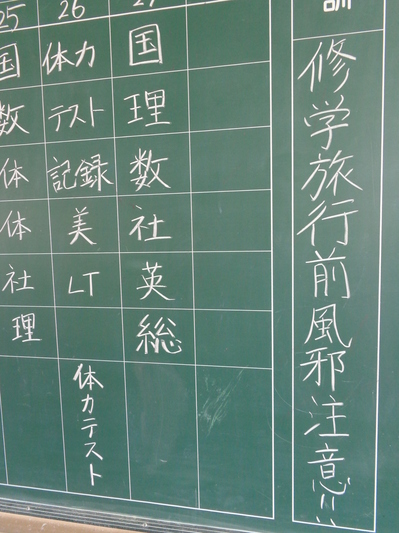 25 26 27
国 体力 国
数 テスト 理
体 記録 数
体 美 社
社 LT 英
理 総
体力テスト
訓
修学旅行前風邪注意!!